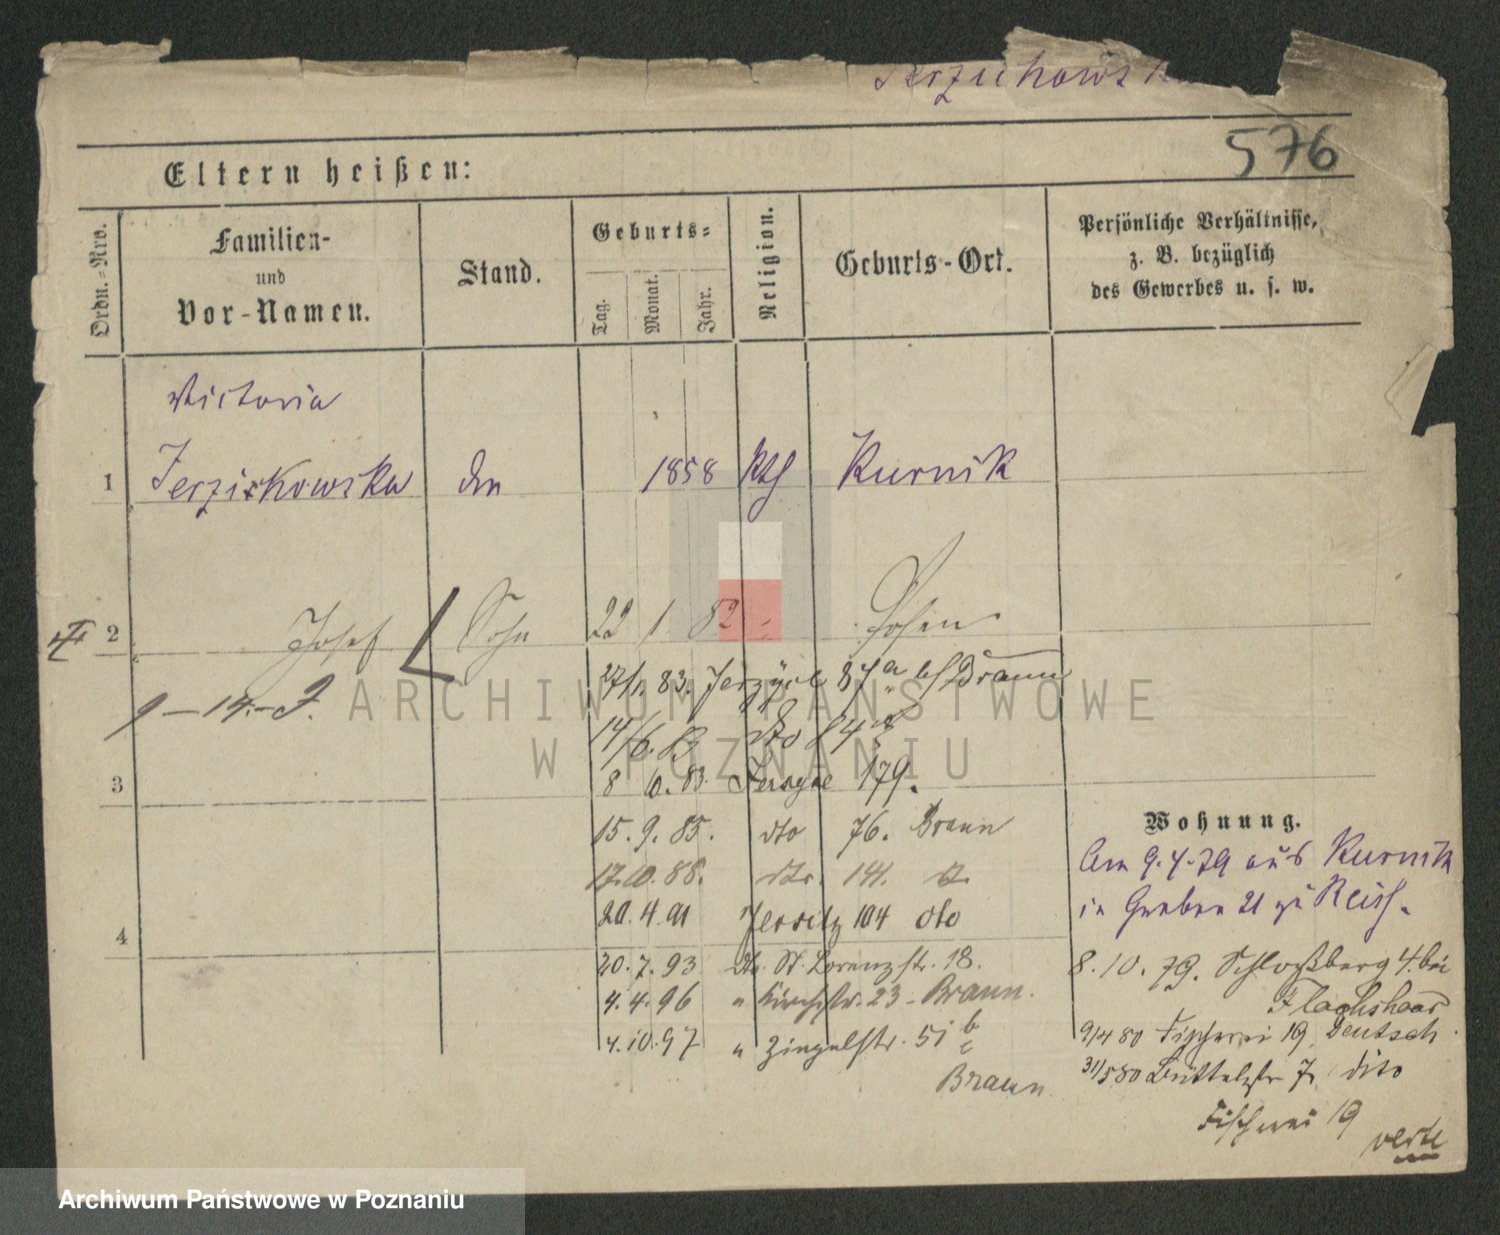 576
Eltern heißen:
Ordn.-Nro.
Familien-
und
Vor-Namen.
Stand.
Geburts-
Tag.
Monat.
Jahr.
Religion.
Geburts-Ort.
Persönliche Verhältnisse,
z. B. bezüglich
des Gewerbes u. s. w.
Victoria
1 Jerzykowska 1858 Kth Kurnik
2 Josef Sohn 22 1 82 Posen
27/1. 83. 87a Braun
14/6. dto
3 8 10. 83. 179.
15. 9. 85. dto 76. Braun
17. 10. 88. dto. 141.
4 20. 4. 91 Jersitz 104 dto
20. 7. 93 St. Lorenzstr. 18.
4. 4. 96 " Kirchstr. 23 - Braun.
4. 10. 97 " Zingelstr. 51 b
Braun
Wohnung.
Am 9.4.79 aus Kurnik
in Graben 21
8. 10. 79. Schloßberg 4. bei
Flachshaar
9/4 80 Fischerei 19, Deutsch
31/5 80 Büttelstr 7. dito
Fischerei 19
verte
ARCHIWUM PAŃSTWOWE
W POZNANIU
Archiwum Państwowe w Poznaniu